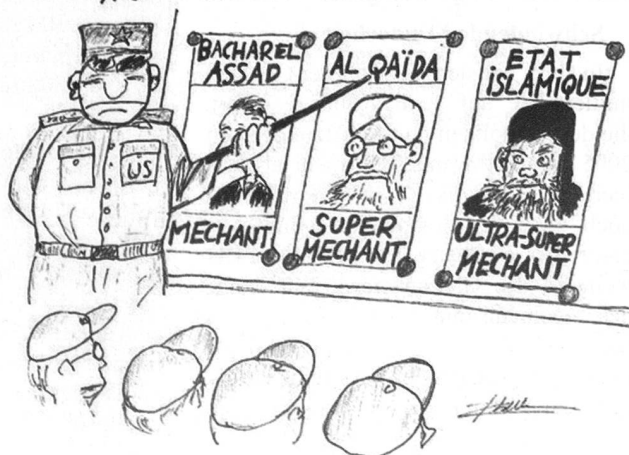 BACHAR EL
ASSAD
MECHANT
AL QAÏDA
SUPER
MECHANT
ETAT
ISLAMIQUE
ULTRA-SUPER
MECHANT
US